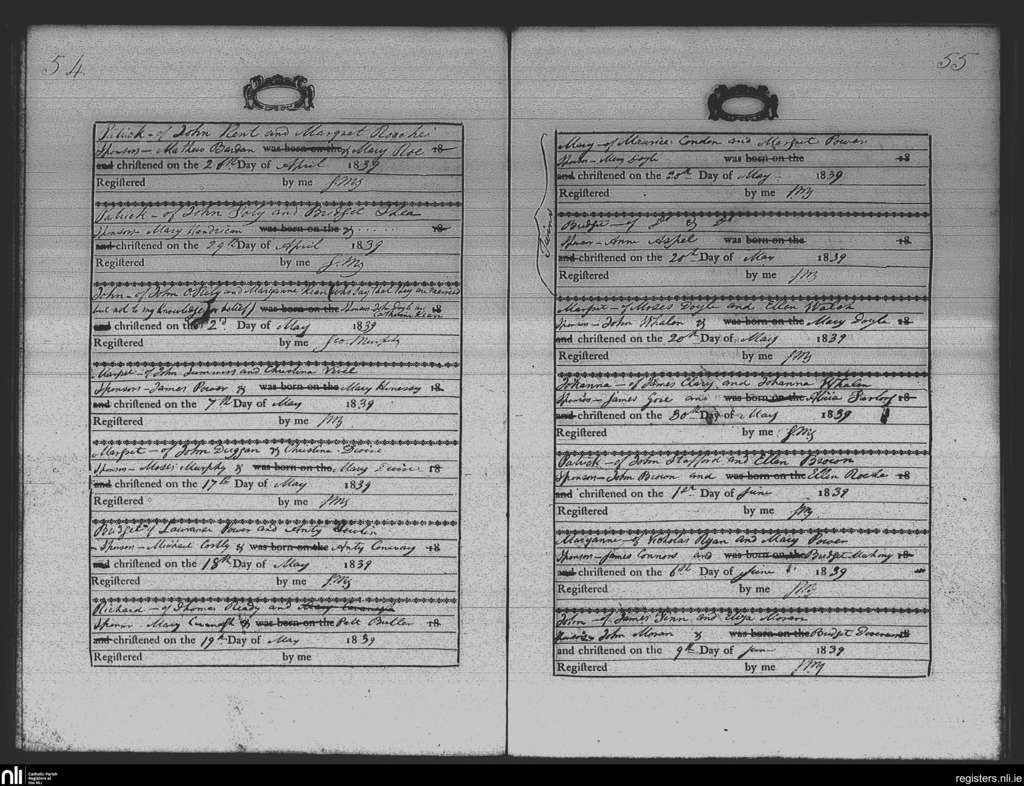 54.
Patrick - of John Kent and Margret Roache
Sponsors - Mathew Bardan was born on the & Mary Roe 18
and christened on the 28th Day of April 1839
Registered by me J. My
Patrick - of John Foly and Bridget Shea
Sponsors - Mary Hondrican was born on the & 18
and christened on the 29th Day of April 1839
Registered by me J. My
John - of John O'Kiely and Maryanne Kean (who say that they are married
but not to my knowledge or belief) was born on the Sponsors John Doyle and Catherine Kean 18
and christened on the 2d Day of May 1839
Registered by me Geo. Murphy
Margret - of John Simmons and Christina
Sponsors - James Power & was born on the Mary Hennessy 18
and christened on the 7th Day of May 1839
Registered by me J My
Margret - of John Duggan & Christina Divine
Sponsors - Moses Murphy & was born on the Mary Divine 18
and christened on the 17th Day of May 1839
Registered by me J My
Bridget of Laurance Power and Anty
Sponsors - Michael Costly & was born on the Anty Conway 18
and christened on the 18th Day of May 1839
Registered by me J. My
Richard - of Thomas Ready and Mary Cavanagh
Sponsor Mary Cavanagh & was born on the Patt Butler 18
and christened on the 19th Day of May 1839
Registered by me
55
Twins
Mary - of Maurice Condon and Margret Power
Sponsor - Mary Doyle was born on the 18
and christened on the 20th Day of May 1839
Registered by me J My
Bridget - of Do & Do
Sponsor - Anne Aspel was born on the 18
and christened on the 20th Day of May 1839
Registered by me J My
Margret - of Moses Doyle and Ellen Walsh
Sponsors - John Whalen & was born on the Mary Doyle 18
and christened on the 20th Day of May 1839
Registered by me J My
Johanna - of James Clary and Johanna Whalen
Sponsors - James Gore and was born on the Alicia 18
and christened on the 30th Day of May 1839
Registered by me J. My
Patrick - of John Stafford and Ellen Brown
Sponsors - John Brown and was born on the Ellen Roche 18
and christened on the 1st Day of June 1839
Registered by me J My
Maryanne - of Nicholas Ryan and Mary Power
Sponsors - James Connors and was born on the Bridget Mahony 18
and christened on the 6th Day of June 1839
Registered by me J My
John - of James Finn and Eliza Moran
Sponsors John Moran & was born on the Bridget 18
and christened on the 9th Day of June 1839
Registered by me J My
nli Catholic Parish Registers at the NLI
registers.nli.ie